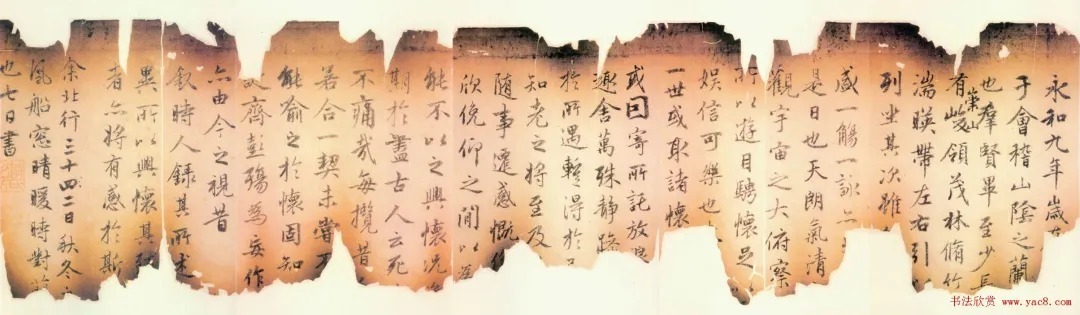 永和九年歲在
于會稽山陰之蘭
也羣賢畢至少長
有崇山峻領茂林脩竹
湍暎帶左右引以
列坐其次雖
盛一觴一詠亦
是日也天朗氣清
觀宇宙之大俯察
所以遊目騁懷足
娛信可樂也
一世或取諸懷
或因寄所託放浪
趣舍萬殊靜躁
於所遇暫得於
知老之將至及
隨事遷感慨係
欣俛仰之閒以為
能不以之興懷況
期於盡古人云死
不痛哉每攬昔
若合一契未嘗不
能喻之於懷固知
齊彭殤為妄作
亦由今之視昔
敘時人錄其所述
異所以興懷其致
者亦將有感於斯
余北行三十四二日秋冬
風船窓晴暖時對
也七日書
书法欣赏 www.yac8.com